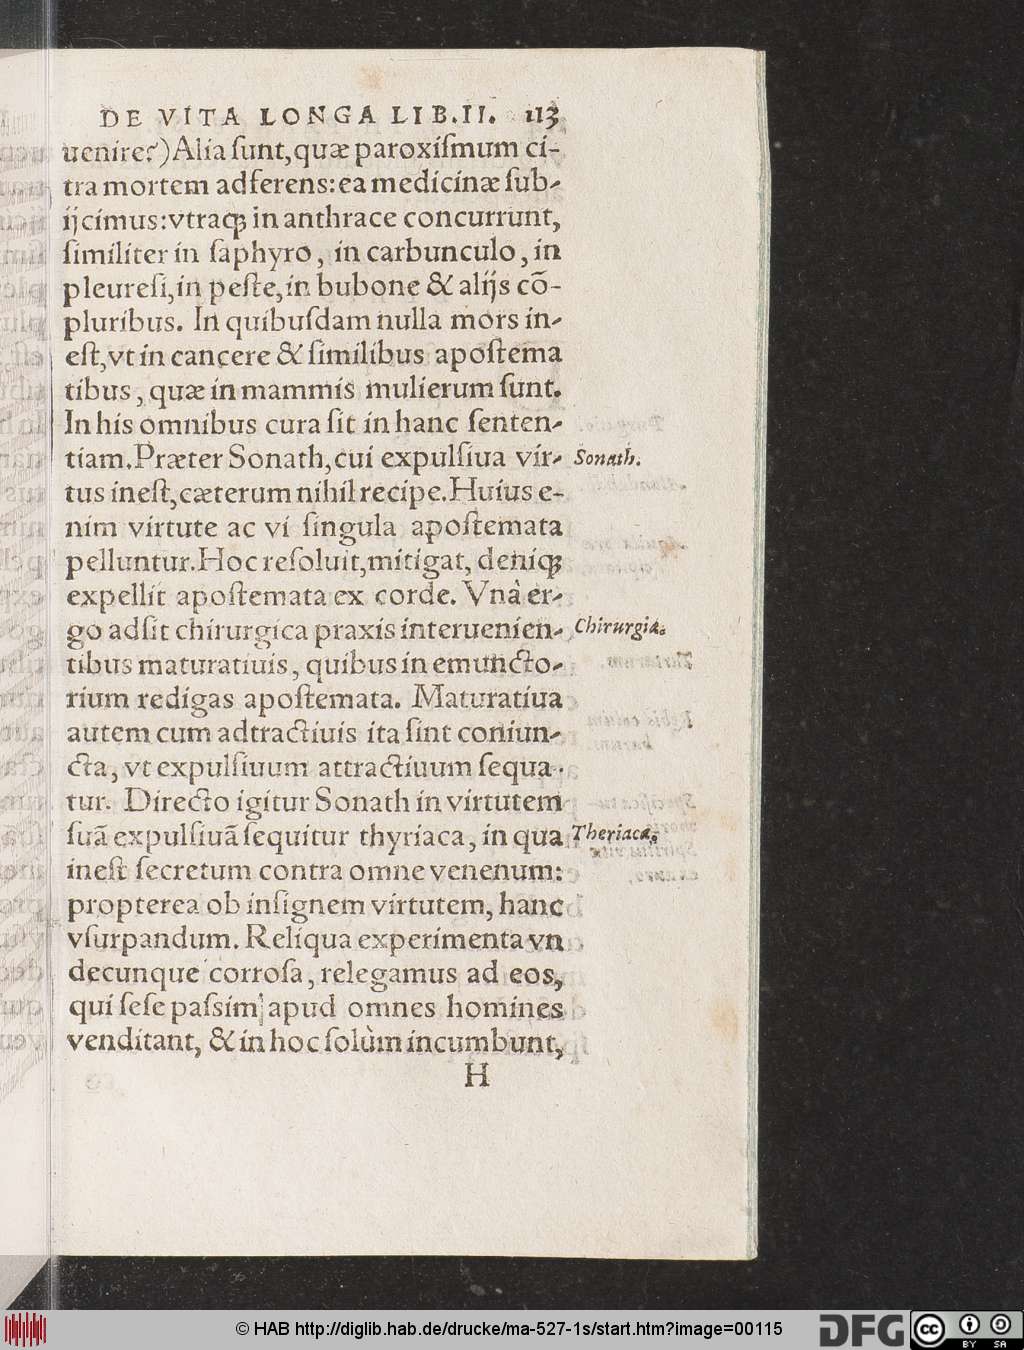 DE VITA LONGA LIB.II. 113
uenire?) Alia ſunt, quæ paroxiſmum ci-
tra mortem adferens: ea medicinæ ſub-
ijcimus: vtraqꝫ in anthrace concurrunt,
ſimiliter in ſaphyro, in carbunculo, in
pleureſi, in peſte, in bubone & alijs cō-
pluribus. In quibuſdam nulla mors in-
eſt, vt in cancere & ſimilibus apoſtema
tibus, quæ in mammis mulierum ſunt.
In his omnibus cura ſit in hanc ſenten-
tiam. Præter Sonath, cui expulſiua vir- Sonath.
tus ineſt, cæterum nihil recipe. Huius e-
nim virtute ac vi ſingula apoſtemata
pelluntur. Hoc reſoluit, mitigat, deniqꝫ
expellit apoſtemata ex corde. Vnà er-
go adſit chirurgica praxis interuenien- Chirurgia.
tibus maturatiuis, quibus in emuncto-
rium redigas apoſtemata. Maturatiua
autem cum adtractiuis ita ſint coniun-
cta, vt expulſiuum attractiuum ſequa-
tur. Directo igitur Sonath in virtutem
ſuā expulſiuā ſequitur thyriaca, in qua Theriaca.
ineſt ſecretum contra omne venenum:
propterea ob inſignem virtutem, hanc
vſurpandum. Reliqua experimenta vn
decunque corroſa, relegamus ad eos,
qui ſeſe paſsim apud omnes homines
venditant, & in hoc ſolùm incumbunt,
H
© HAB http://diglib.hab.de/drucke/ma-527-1s/start.htm?image=00115
DFG
cc
BY SA